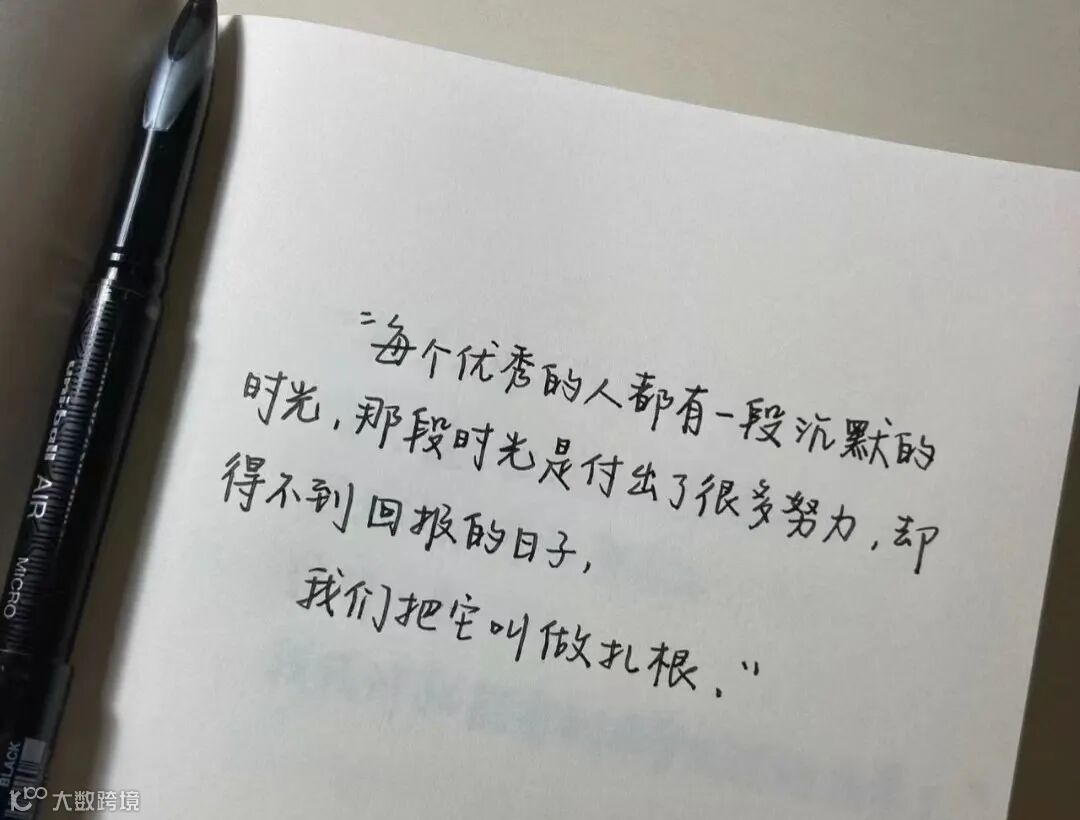 “每个优秀的人都有一段沉默的
时光，那段时光是付出了很多努力，却
得不到回报的日子，
我们把它叫做扎根.”
uniball AIR
MICRO
BLACK
大数跨境